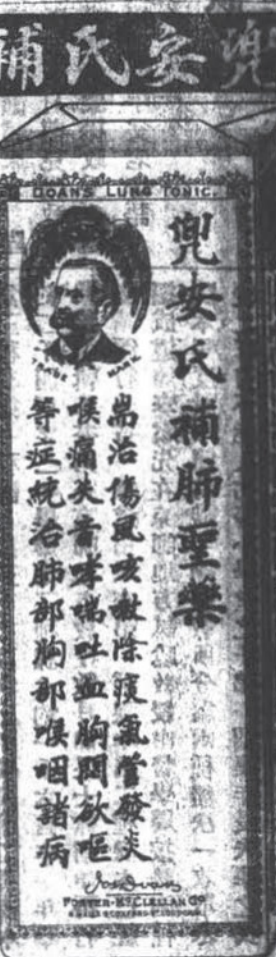 兜安氏補
DOAN'S LUNG TONIC.
兜安氏補肺聖藥
TRADE MARK
耑治傷風咳嗽除痰氣管發炎
喉痛失音哮喘吐血胸悶欲嘔
等症統治肺部胸部喉咽諸病
FOSTER-McCLELLAN Co